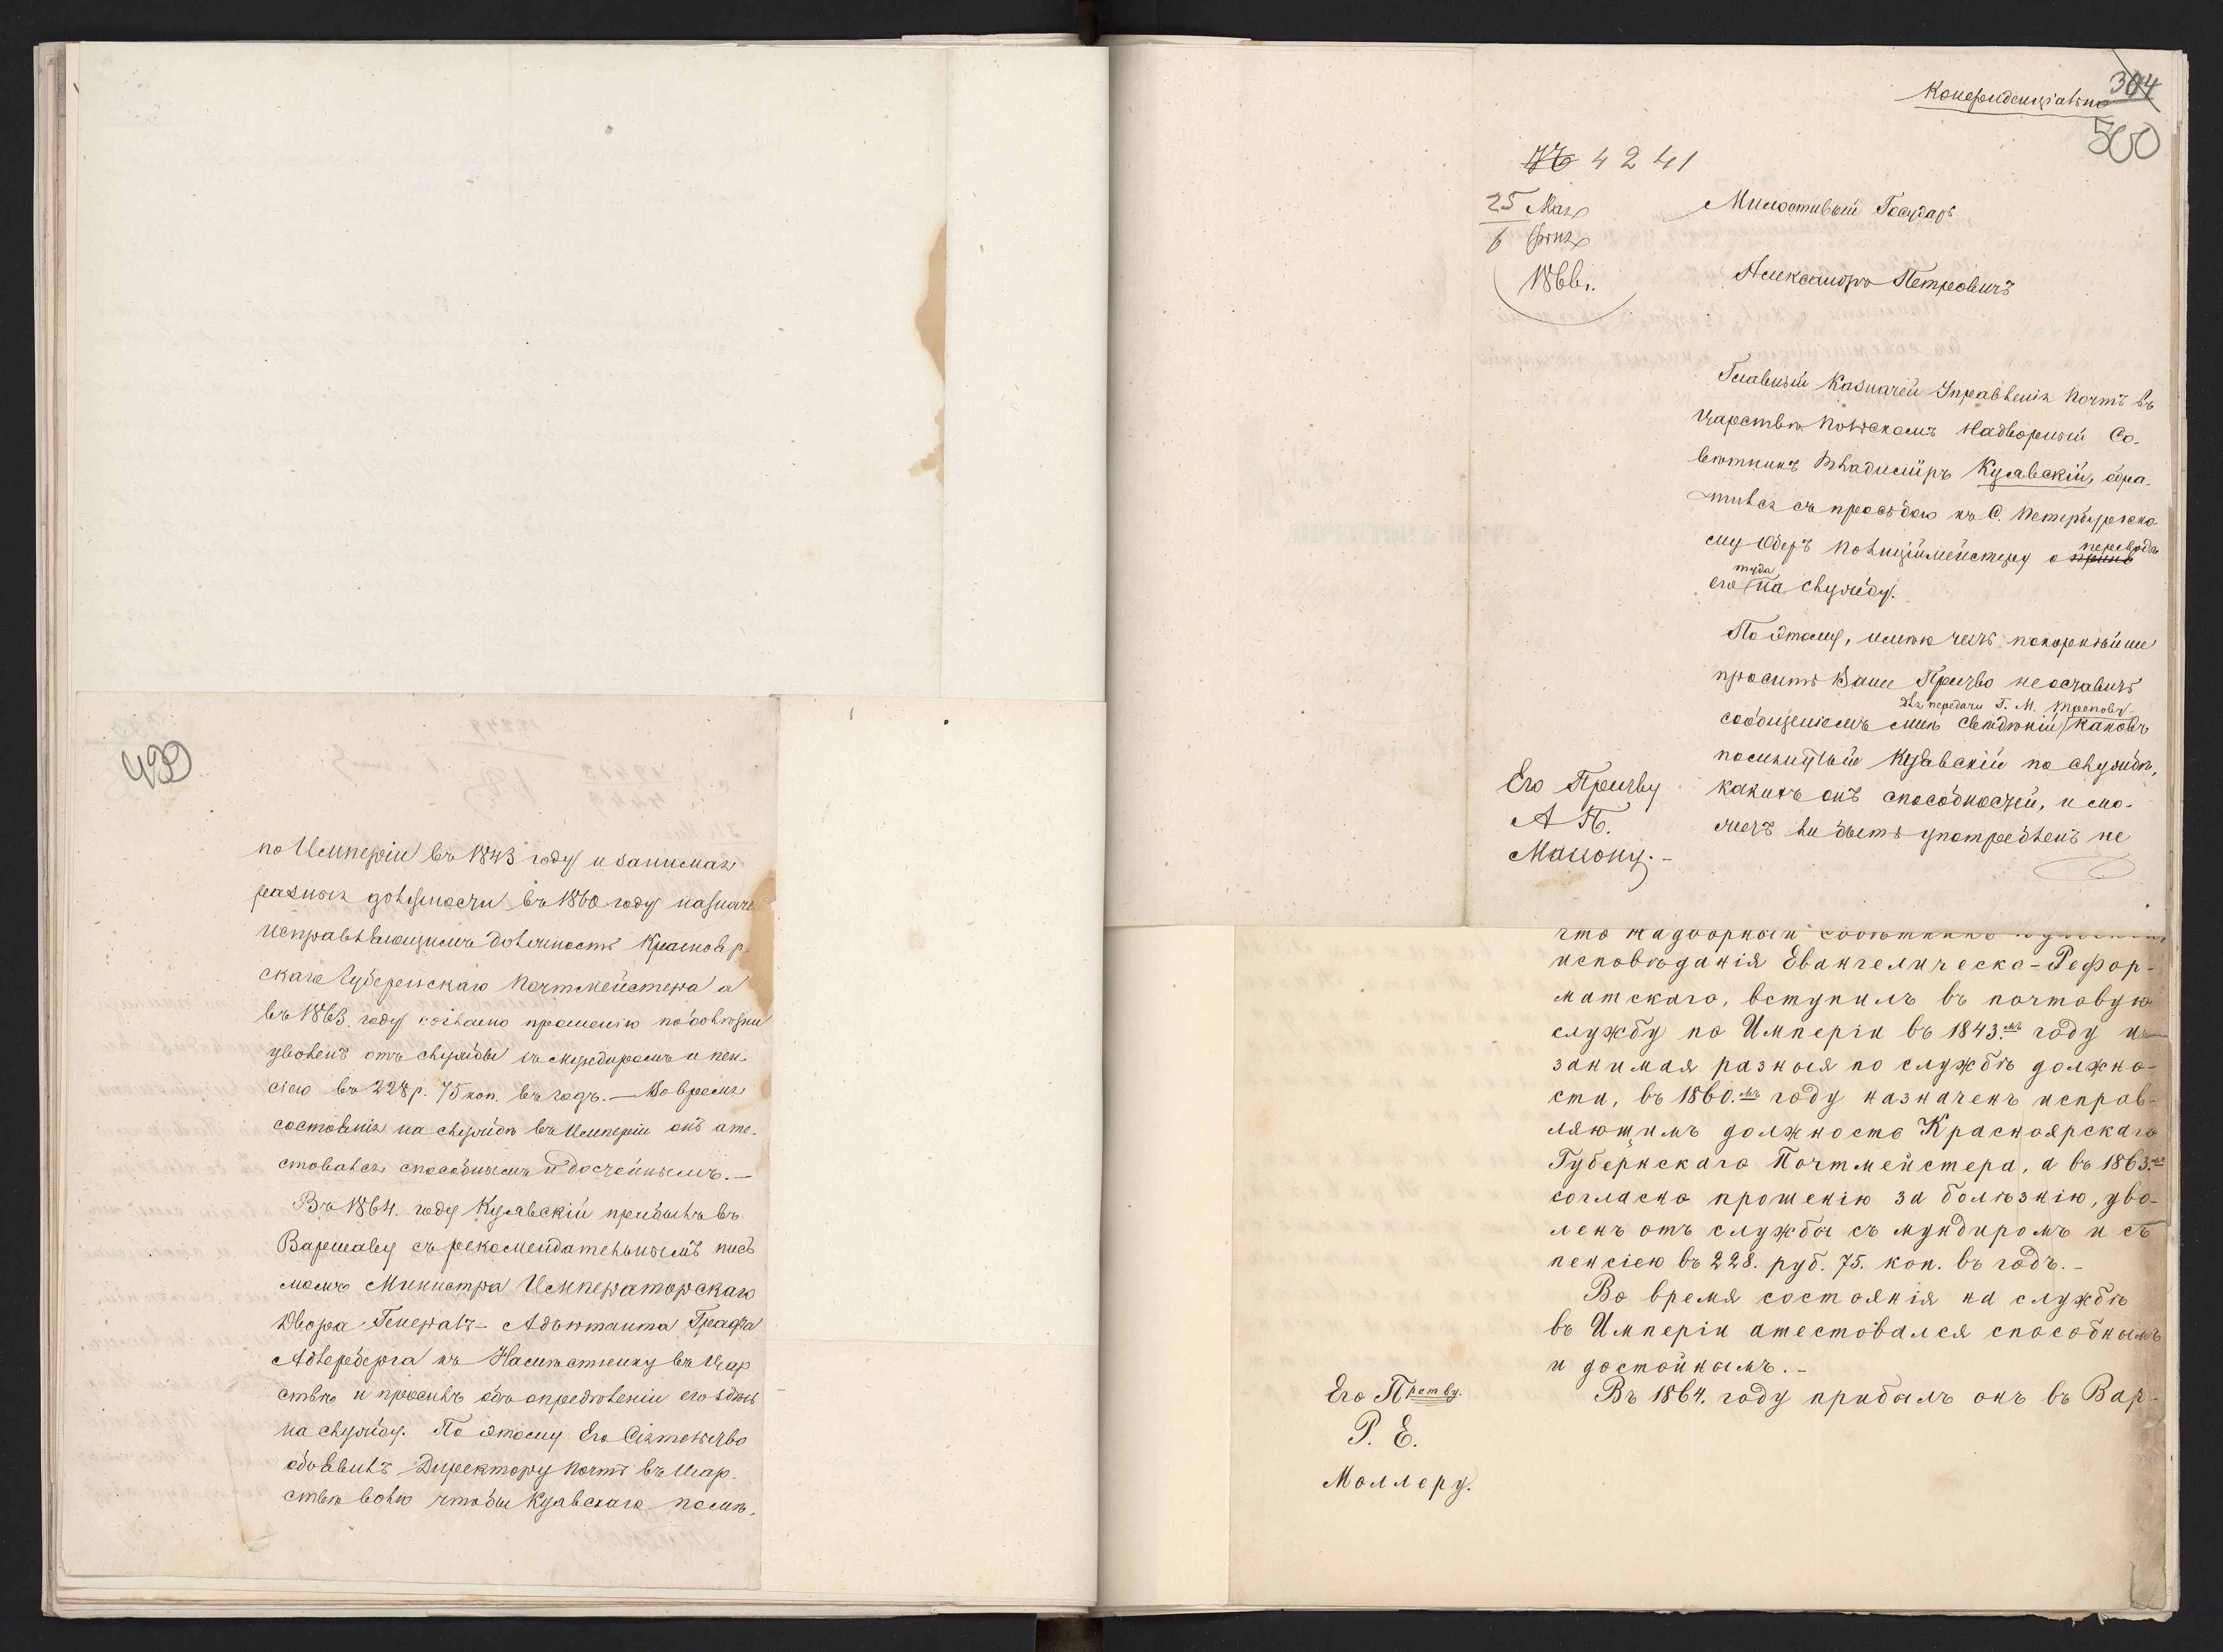 499
по Имперіи въ 1843 году и занимая
разныя должности въ 1860 году назначе
исправляющимъ должность Краснояр
скаго Губернскаго Почтмейстера а
въ 1863. году согласно прошенію по болѣзни
уволенъ отъ службы съ мундиромъ и пен-
сіею въ 228 р. 75 коп. въ годъ. — Во время
состоянія на службѣ въ Имперіи онъ ате-
стовался способнымъ и достойнымъ. —
Въ 1864. году Куявскій прибылъ въ
Варшаву съ рекомендательнымъ пись
момъ Министра Императорскаго
Двора Генералъ-Адъютанта Графа
Адлерберга къ Намѣстнику въ Цар
ствѣ и просилъ объ опредѣленіи его здѣсь
на службу. По этому Его Сіятельство
объявилъ Директору Почтъ въ Цар-
ствѣ волю чтобы Куявскаго помѣ-
Конфиденціально
304
500
№ 4241
25 Мая
6 Іюня
1866 г.
Милостивый Государь
Александръ Петровичъ
Главный Казначей Управленія Почтъ въ
Царствѣ Польскомъ Надворный Со-
вѣтникъ Владиміръ Куявскій, обра-
тился съ просьбою къ С. Петербургско-
му Оберъ Полиціймейстеру о переводѣ
его туда на службу.
По этому, имѣю честь покорнѣйше
просить Ваше Пр–ство не оставить
для передачи Г. М. Трепову
сообщеніемъ мнѣ свѣдѣній, каковъ
помянутый Куявскій по службѣ,
какихъ онъ способностей, и мо-
жетъ ли быть употребленъ не
Его Пр–ству
А. П.
что Надворный Совѣтникъ Куявскій,
исповѣданія Евангелическо-Рефор-
матскаго, вступилъ въ почтовую
службу по Имперіи въ 1843.мъ году и
занимая разныя по службѣ должно-
сти, въ 1860.мъ году назначенъ исправ-
ляющимъ должность Красноярскаго
Губернскаго Почтмейстера, а въ 1863.мъ
согласно прошенію за болѣзнію, уво-
ленъ отъ службы съ мундиромъ и съ
пенсіею въ 228. руб. 75. коп. въ годъ. -
Во время состоянія на службѣ
въ Имперіи атестовался способнымъ
и достойнымъ. -
Въ 1864. году прибылъ онъ въ Вар-
Его Пр–ству.
Р. Е.
Моллеру.